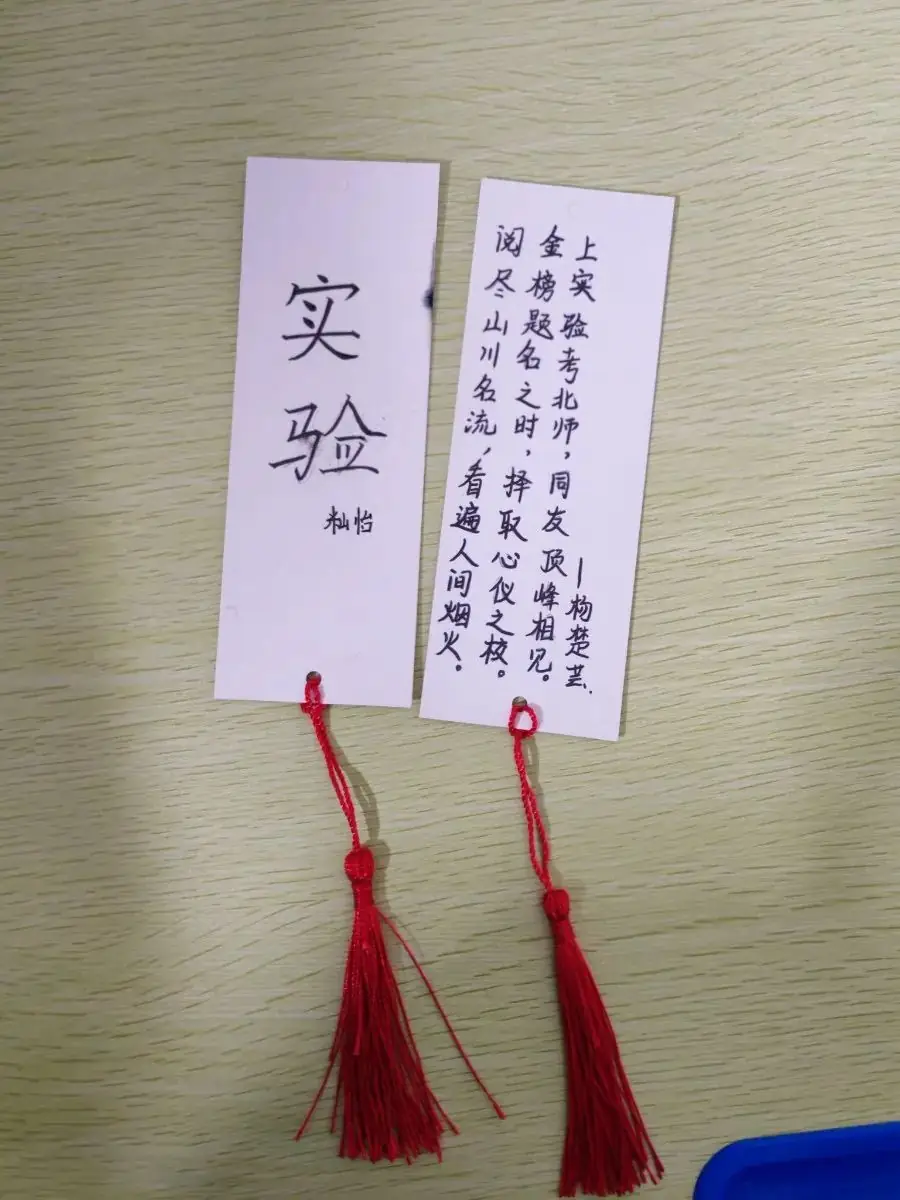 实验
籼怡
上实验考北师，同友顶峰相见。
金榜题名之时，择取心仪之校。
阅尽山川名流，看遍人间烟火。
—杨楚芸.